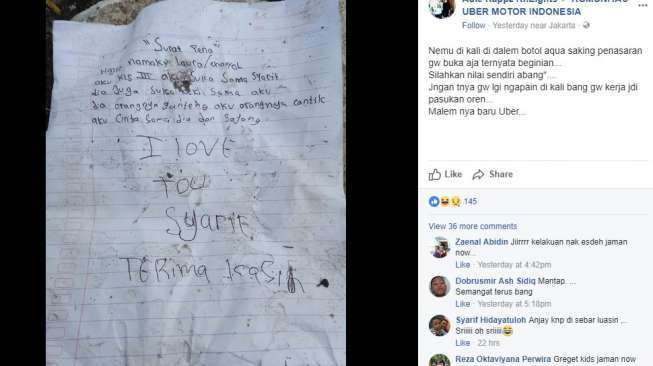 "Surat Pena"
namaku Laura
aku kls III aku suka sama Syarif
dia juga suka sama aku
dia orangnya ganteng aku orangnya cantik
aku cinta sama dia dan sayang.
I love
You
Syarif
TERima kasih
UBER MOTOR INDONESIA
Follow · Yesterday near Jakarta ·
Nemu di kali di dalem botol aqua saking penasaran
gw buka aja ternyata beginian...
Silahkan nilai sendiri abang"....
Jngan tnya gw lgi ngapain di kali bang gw kerja jdi
pasukan oren...
Malem nya baru Uber...
Like Share
145
View 36 more comments
Zaenal Abidin Jiirrrr kelakuan nak esdeh jaman
now...
Like · Yesterday at 4:42pm
Dobrusmir Ash Sidiq Mantap....
Semangat terus bang
Like · Yesterday at 5:18pm
Syarif Hidayatuloh Anjay knp di sebar luasin ,..
Sriiiii oh sriiiii
Like · 22 hrs
Reza Oktaviyana Perwira Greget kids jaman now